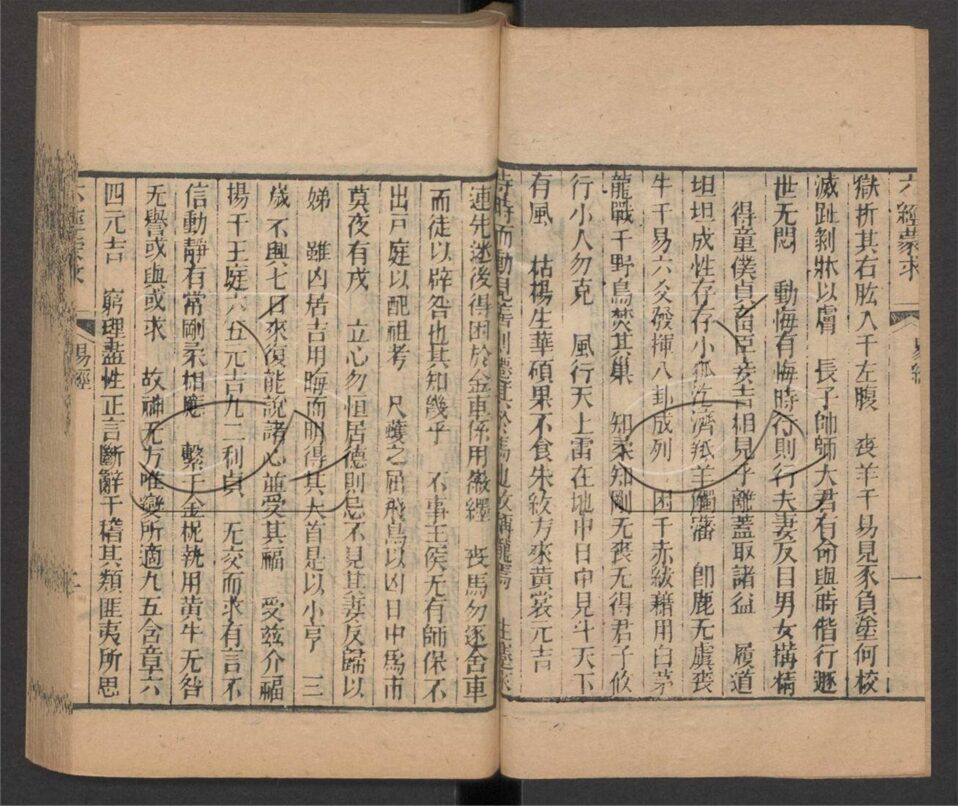 六經蒙求
易經
一
獄折其右肱入于左腹　喪羊于易見豕負塗何校
滅趾剝牀以膚　長子帥師大君有命與時偕行遯
世无悶　動悔有悔時行則行夫妻反目男女搆精
得童僕貞畜臣妾吉相見乎離蓋取諸益　履道
坦坦成性存存小狐汔濟羝羊觸藩　卽鹿无虞喪
牛于易六爻發揮八卦成列　困于赤紱藉用白茅
龍戰于野鳥焚其巢　知柔知剛无喪无得君子攸
行小人勿克　風行天上雷在地中日中見斗天下
有風　枯楊生華碩果不食朱紱方來黃裳元吉
待時而動見善則遷
連先迷後得困於金車係用徽纆　喪馬勿逐舍車
而徒以辟咎也其知幾乎　不事王侯无有師保不
出戸庭以配祖考　尺蠖之屈飛鳥以凶日中爲市
莫夜有戎　立心勿恒居德則忌不見其妻反歸以
娣　雖凶居吉用晦而明得其大首是以小亨　三
歲不興七日來復能說諸心並受其福　受兹介福
揚于王庭六五元吉九二利貞　无交而求有言不
信動靜有常剛柔相應　繫于金柅執用黃牛无咎
无譽或與或求　故神无方唯變所適九五含章六
四元吉　窮理盡性正言斷辭于稽其類匪夷所思
六經蒙求
易經
二